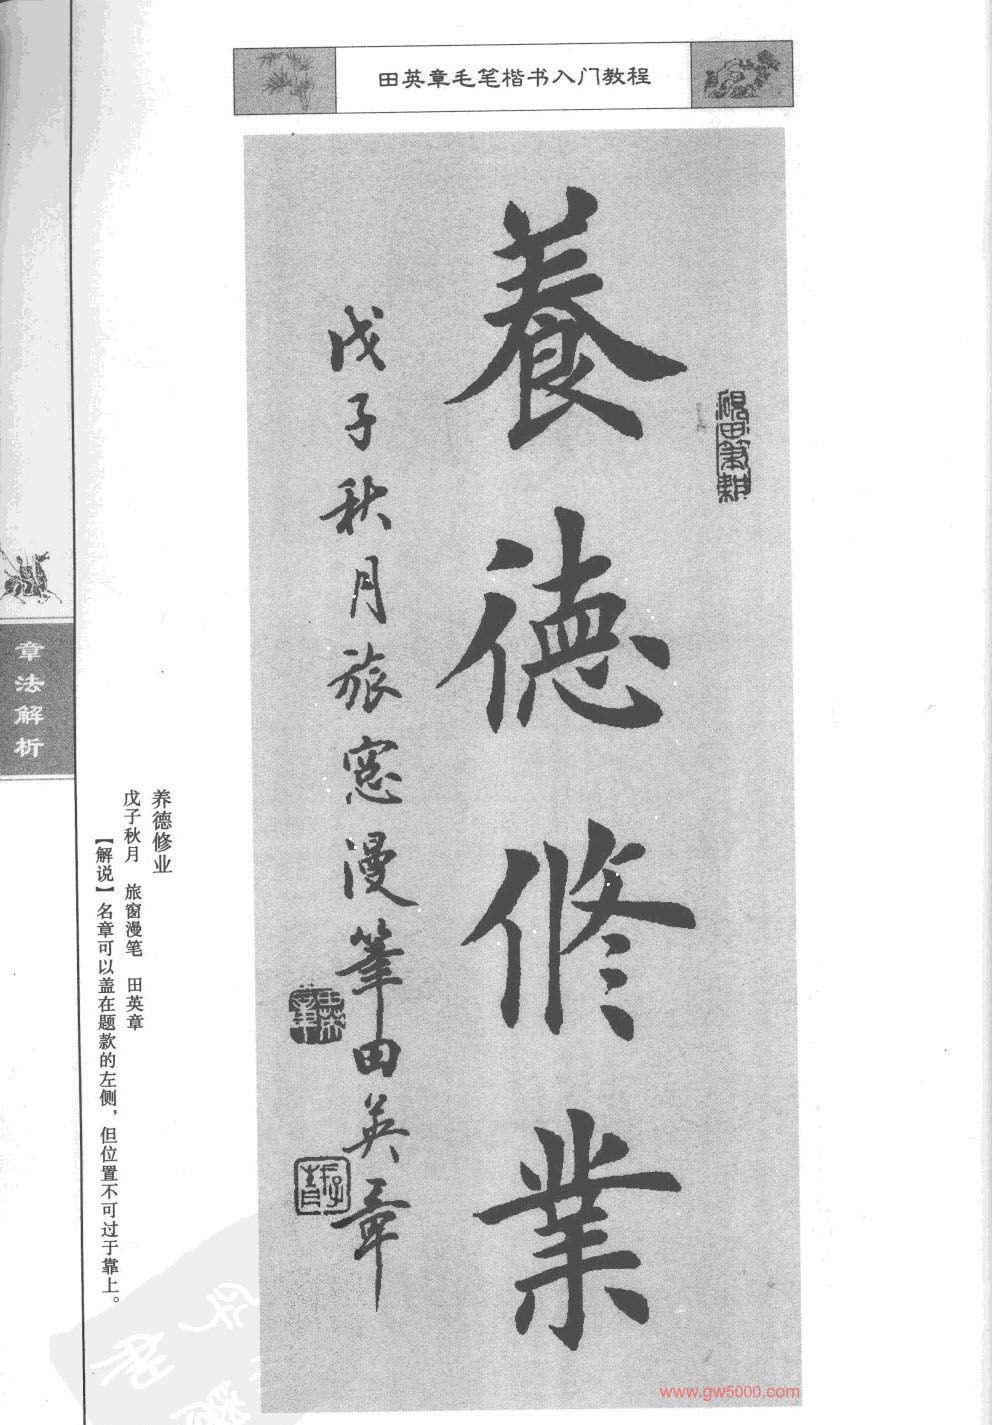 田英章毛笔楷书入门教程
養德修業
戊子秋月旅窓漫筆田英章
砚田笔耕
章法解析
养德修业
戊子秋月　旅窗漫笔　田英章
【解说】名章可以盖在题款的左侧，但位置不可过于靠上。
www.gw5000.com